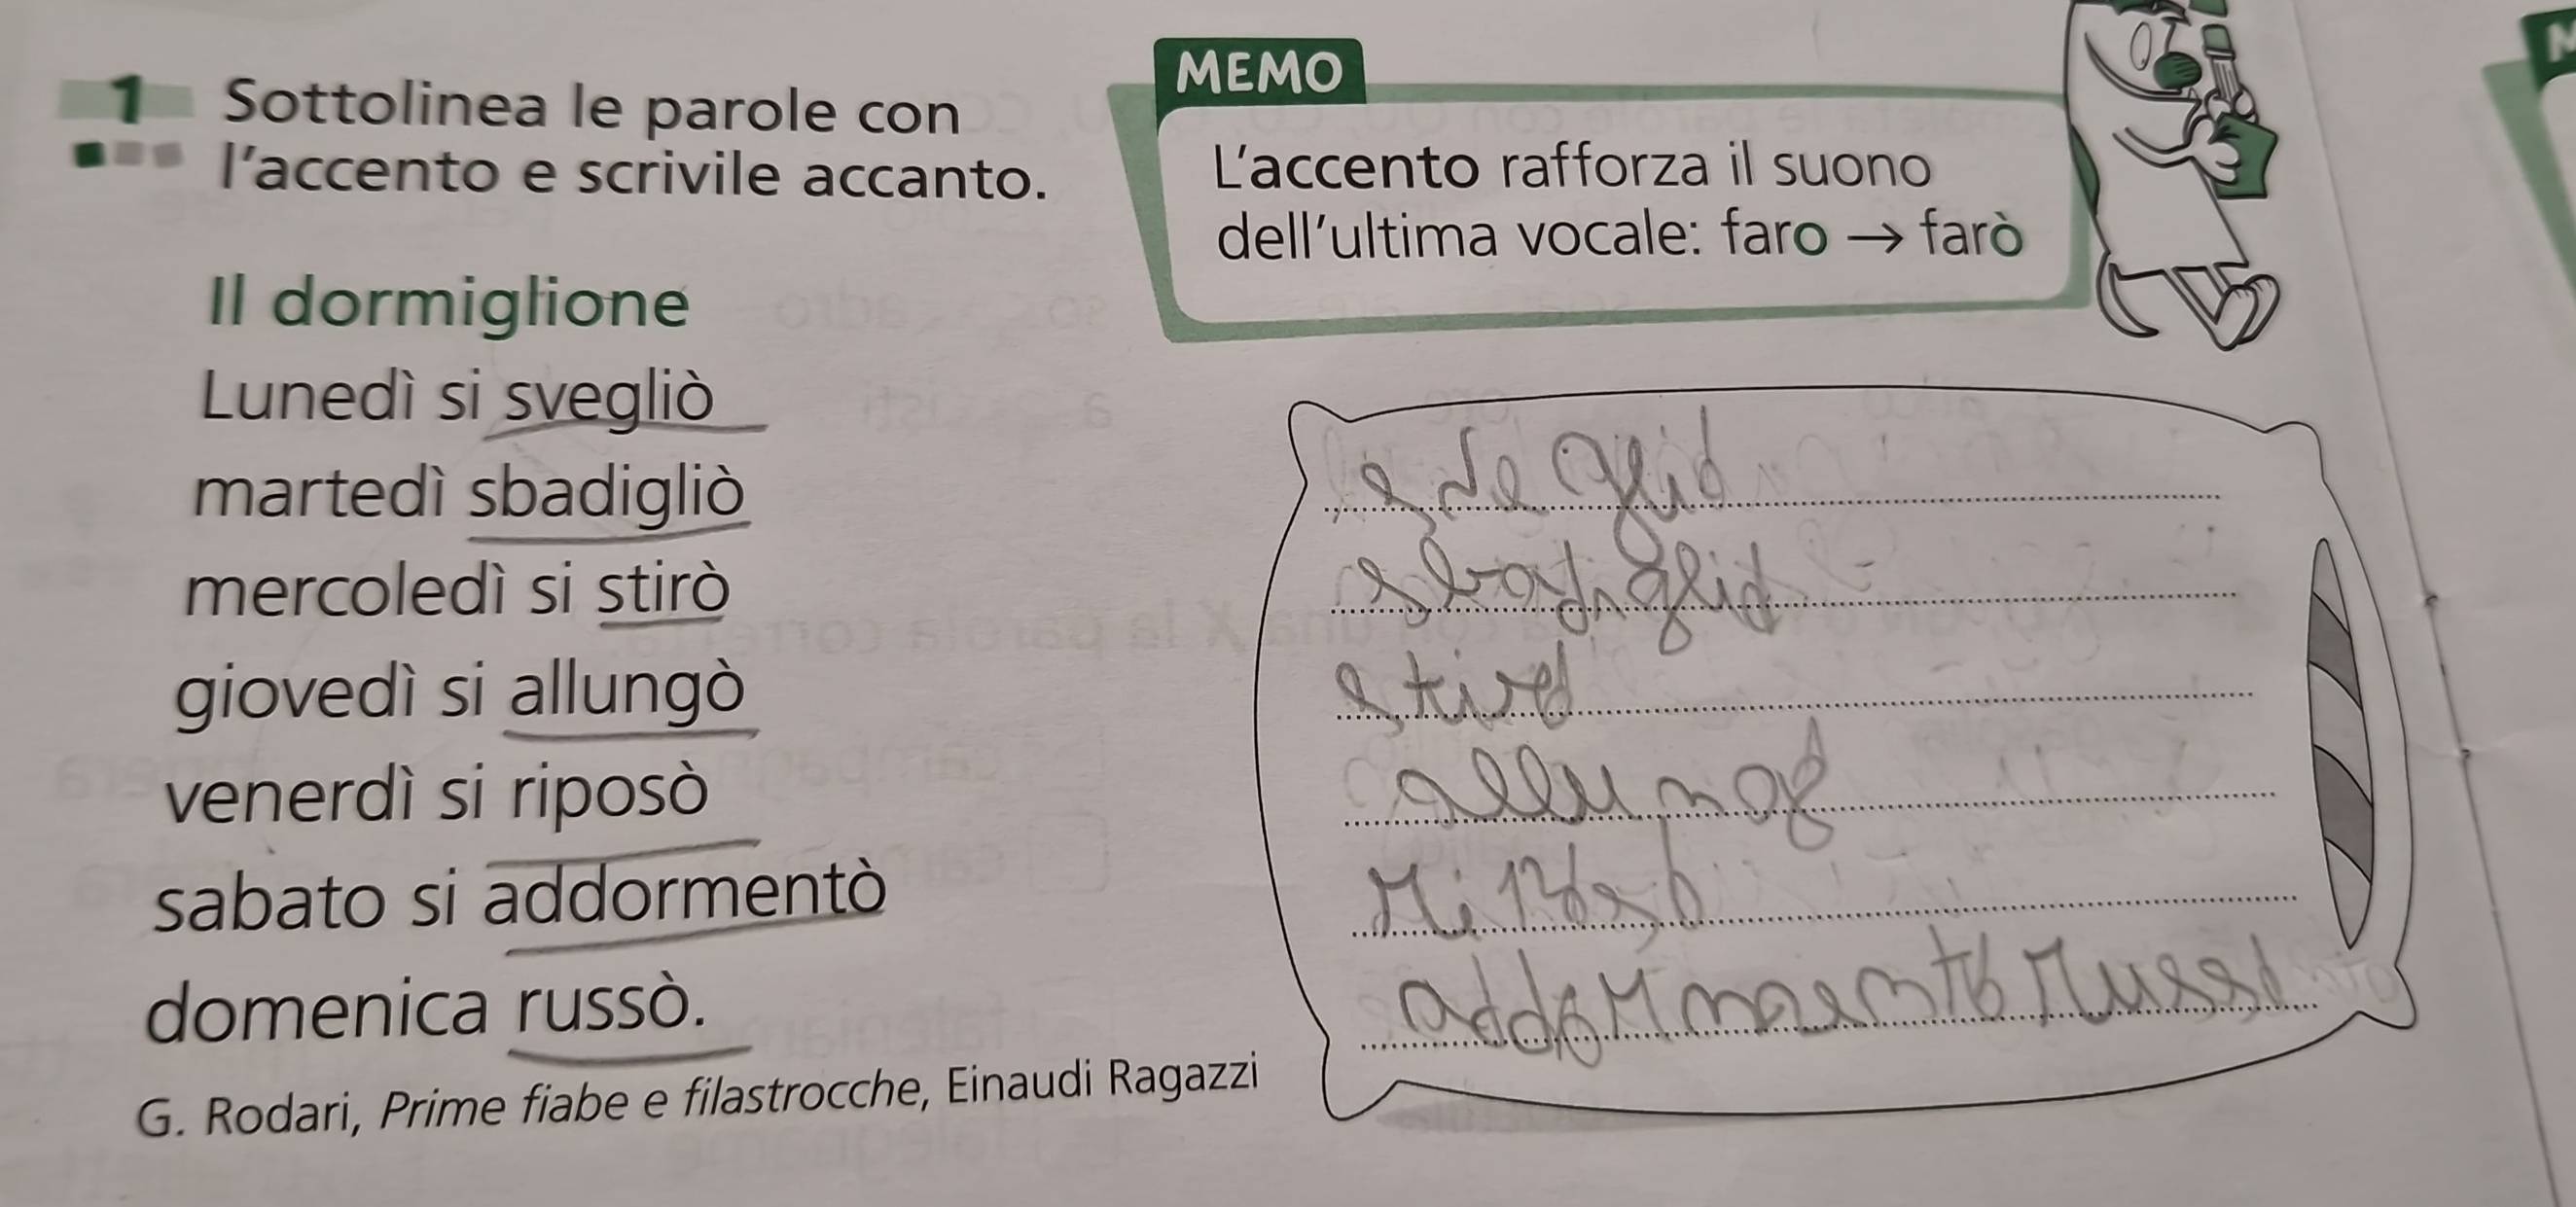 1 Sottolinea le parole con
l'accento e scrivile accanto.
MEMO
L'accento rafforza il suono
dell'ultima vocale: faro → farò
Il dormiglione
Lunedì si svegliò
martedì sbadigliò
mercoledì si stirò
giovedì si allungò
venerdì si riposò
sabato si addormentò
domenica russò.
G. Rodari, Prime fiabe e filastrocche, Einaudi Ragazzi
svegliò
sbadigliò
stirò
allungò
riposò
addormentò russò